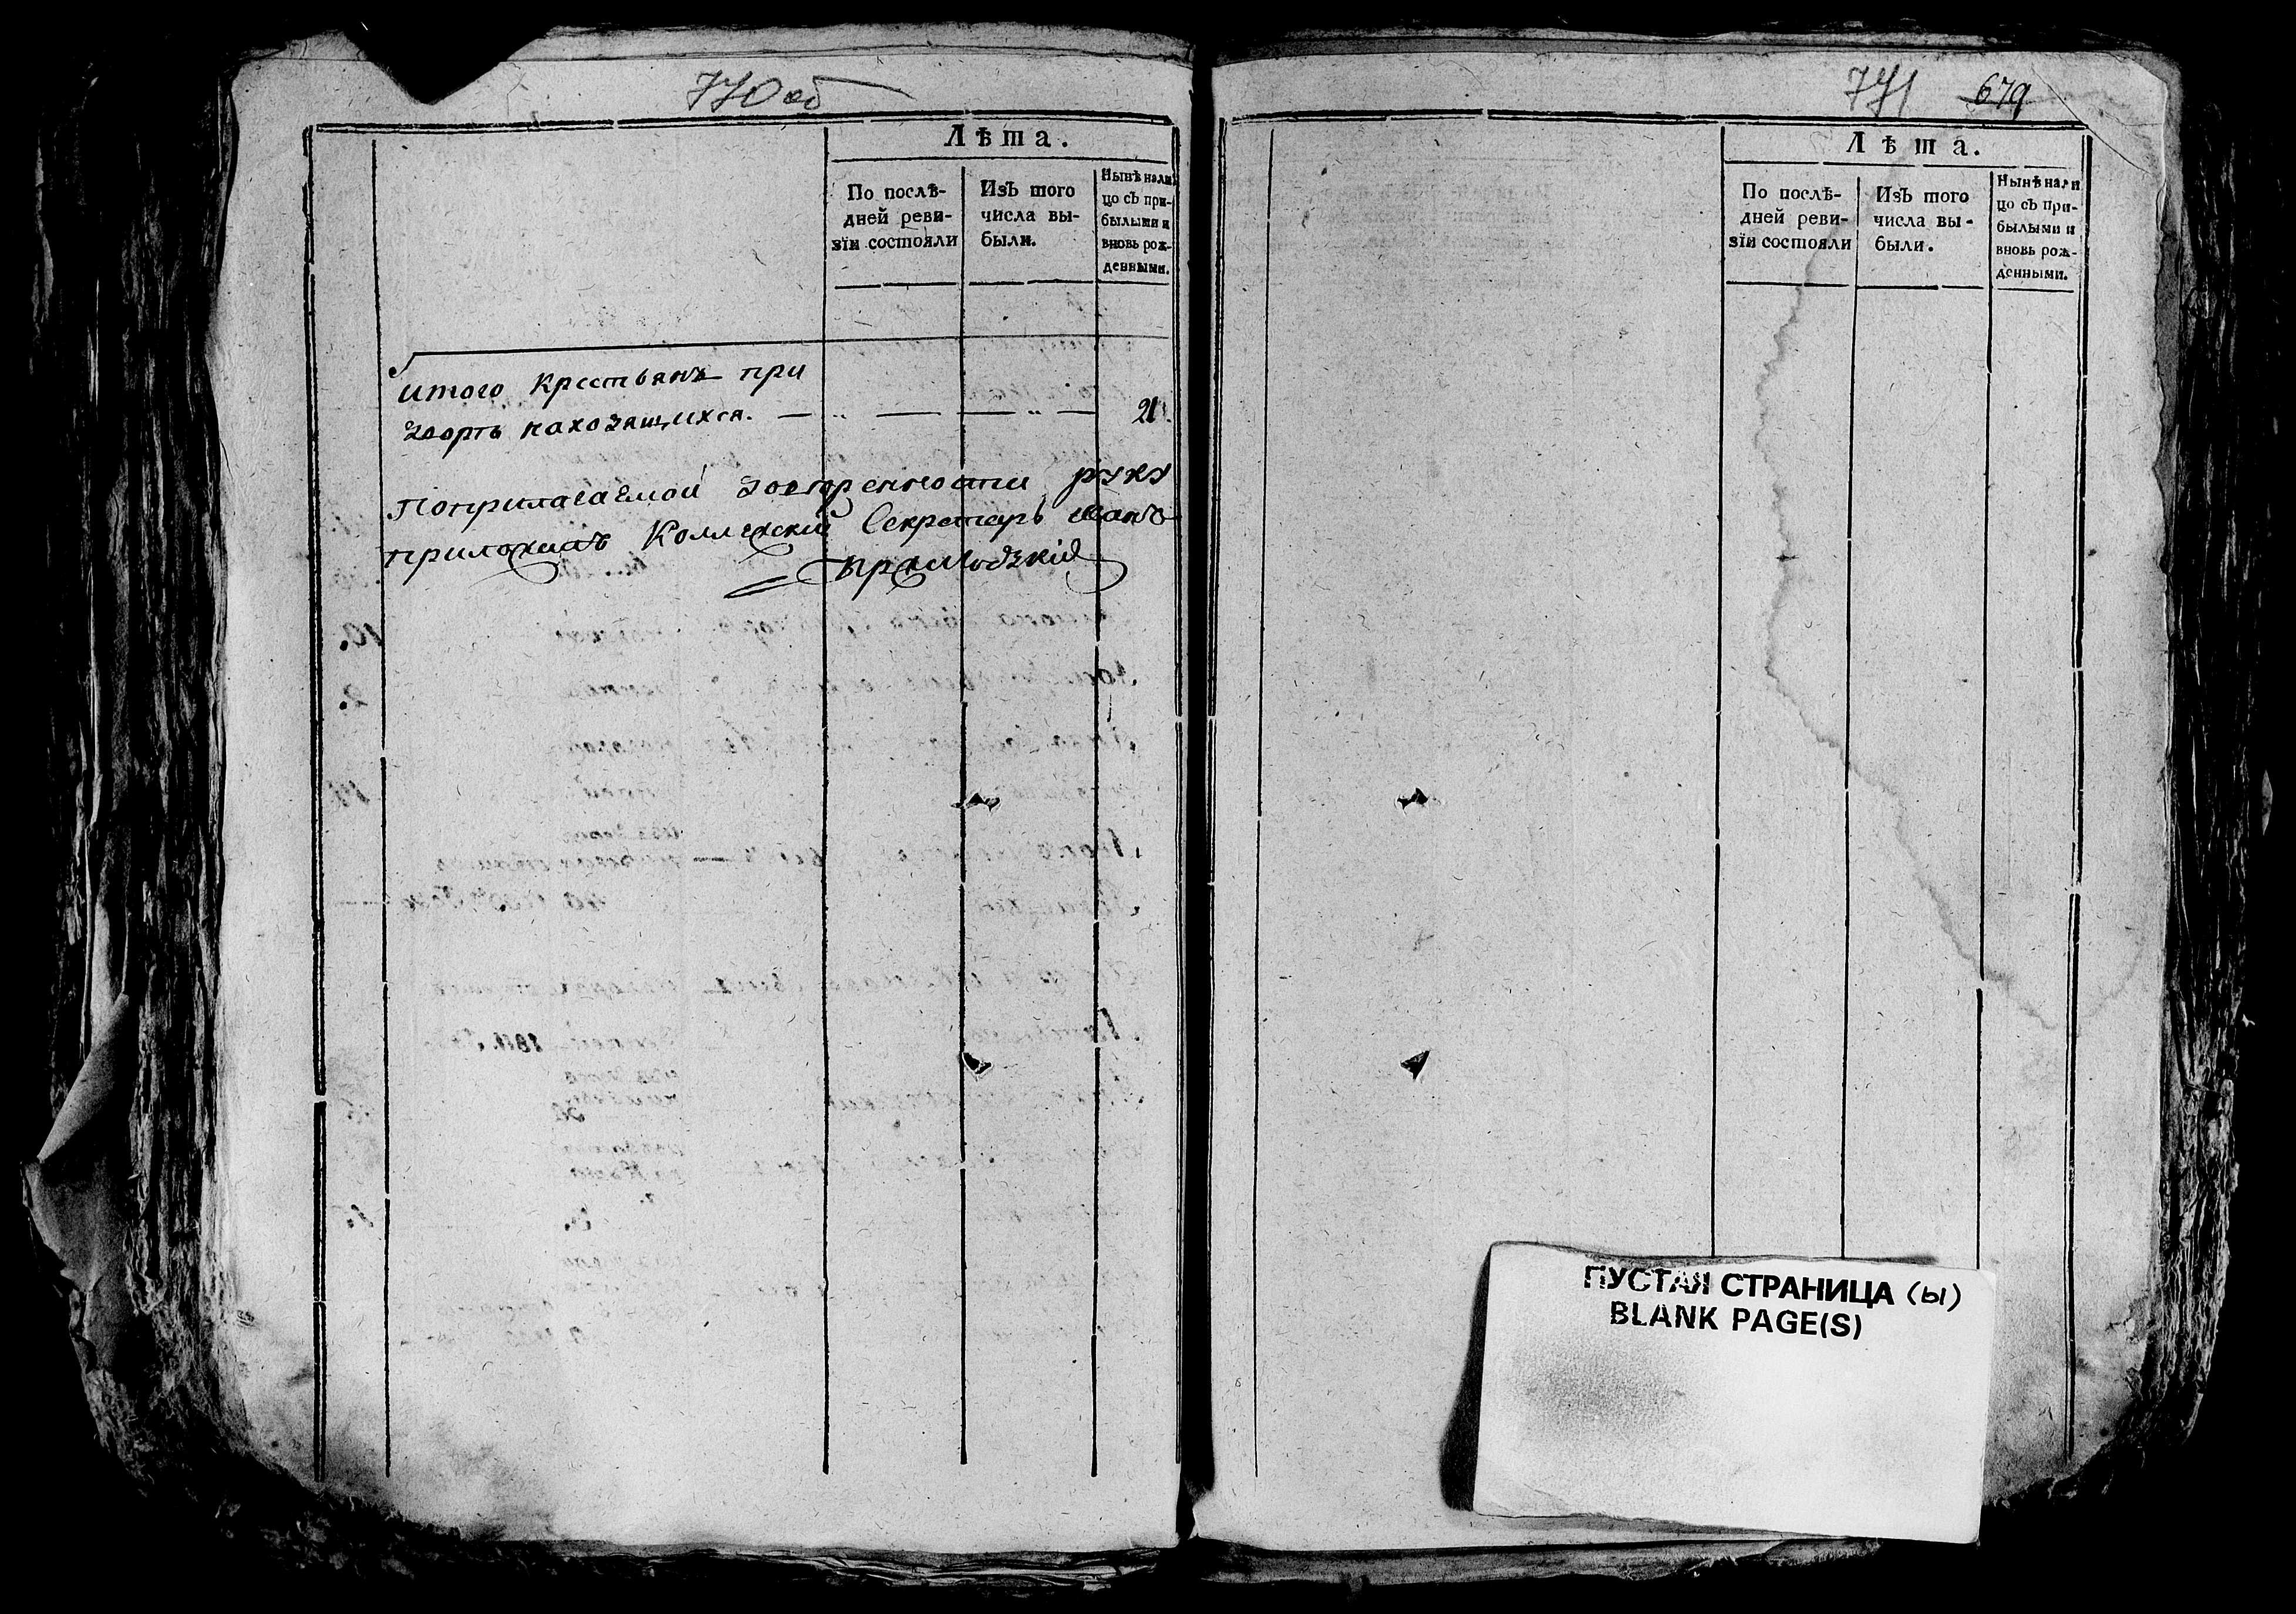 770об
Лѣта.
По послѣ-
дней реви-
зіи состояли
Изъ того
числа вы-
были.
Нынѣ нали
цо съ при-
былыми и
вновь рож-
денными.
итого Крестьянъ при
дворѣ находящихся. — „ — — „ — 21.
Поприлагаемой доверенности руку
приложилъ Коллежский Секретарь Иванъ
771 679
Лѣта.
По послѣ-
дней реви-
зіи состояли
Изъ того
числа вы-
были.
Нынѣ нали
цо съ при-
былыми и
вновь рож-
денными.
ПУСТАЯ СТРАНИЦА (Ы)
BLANK PAGE(S)